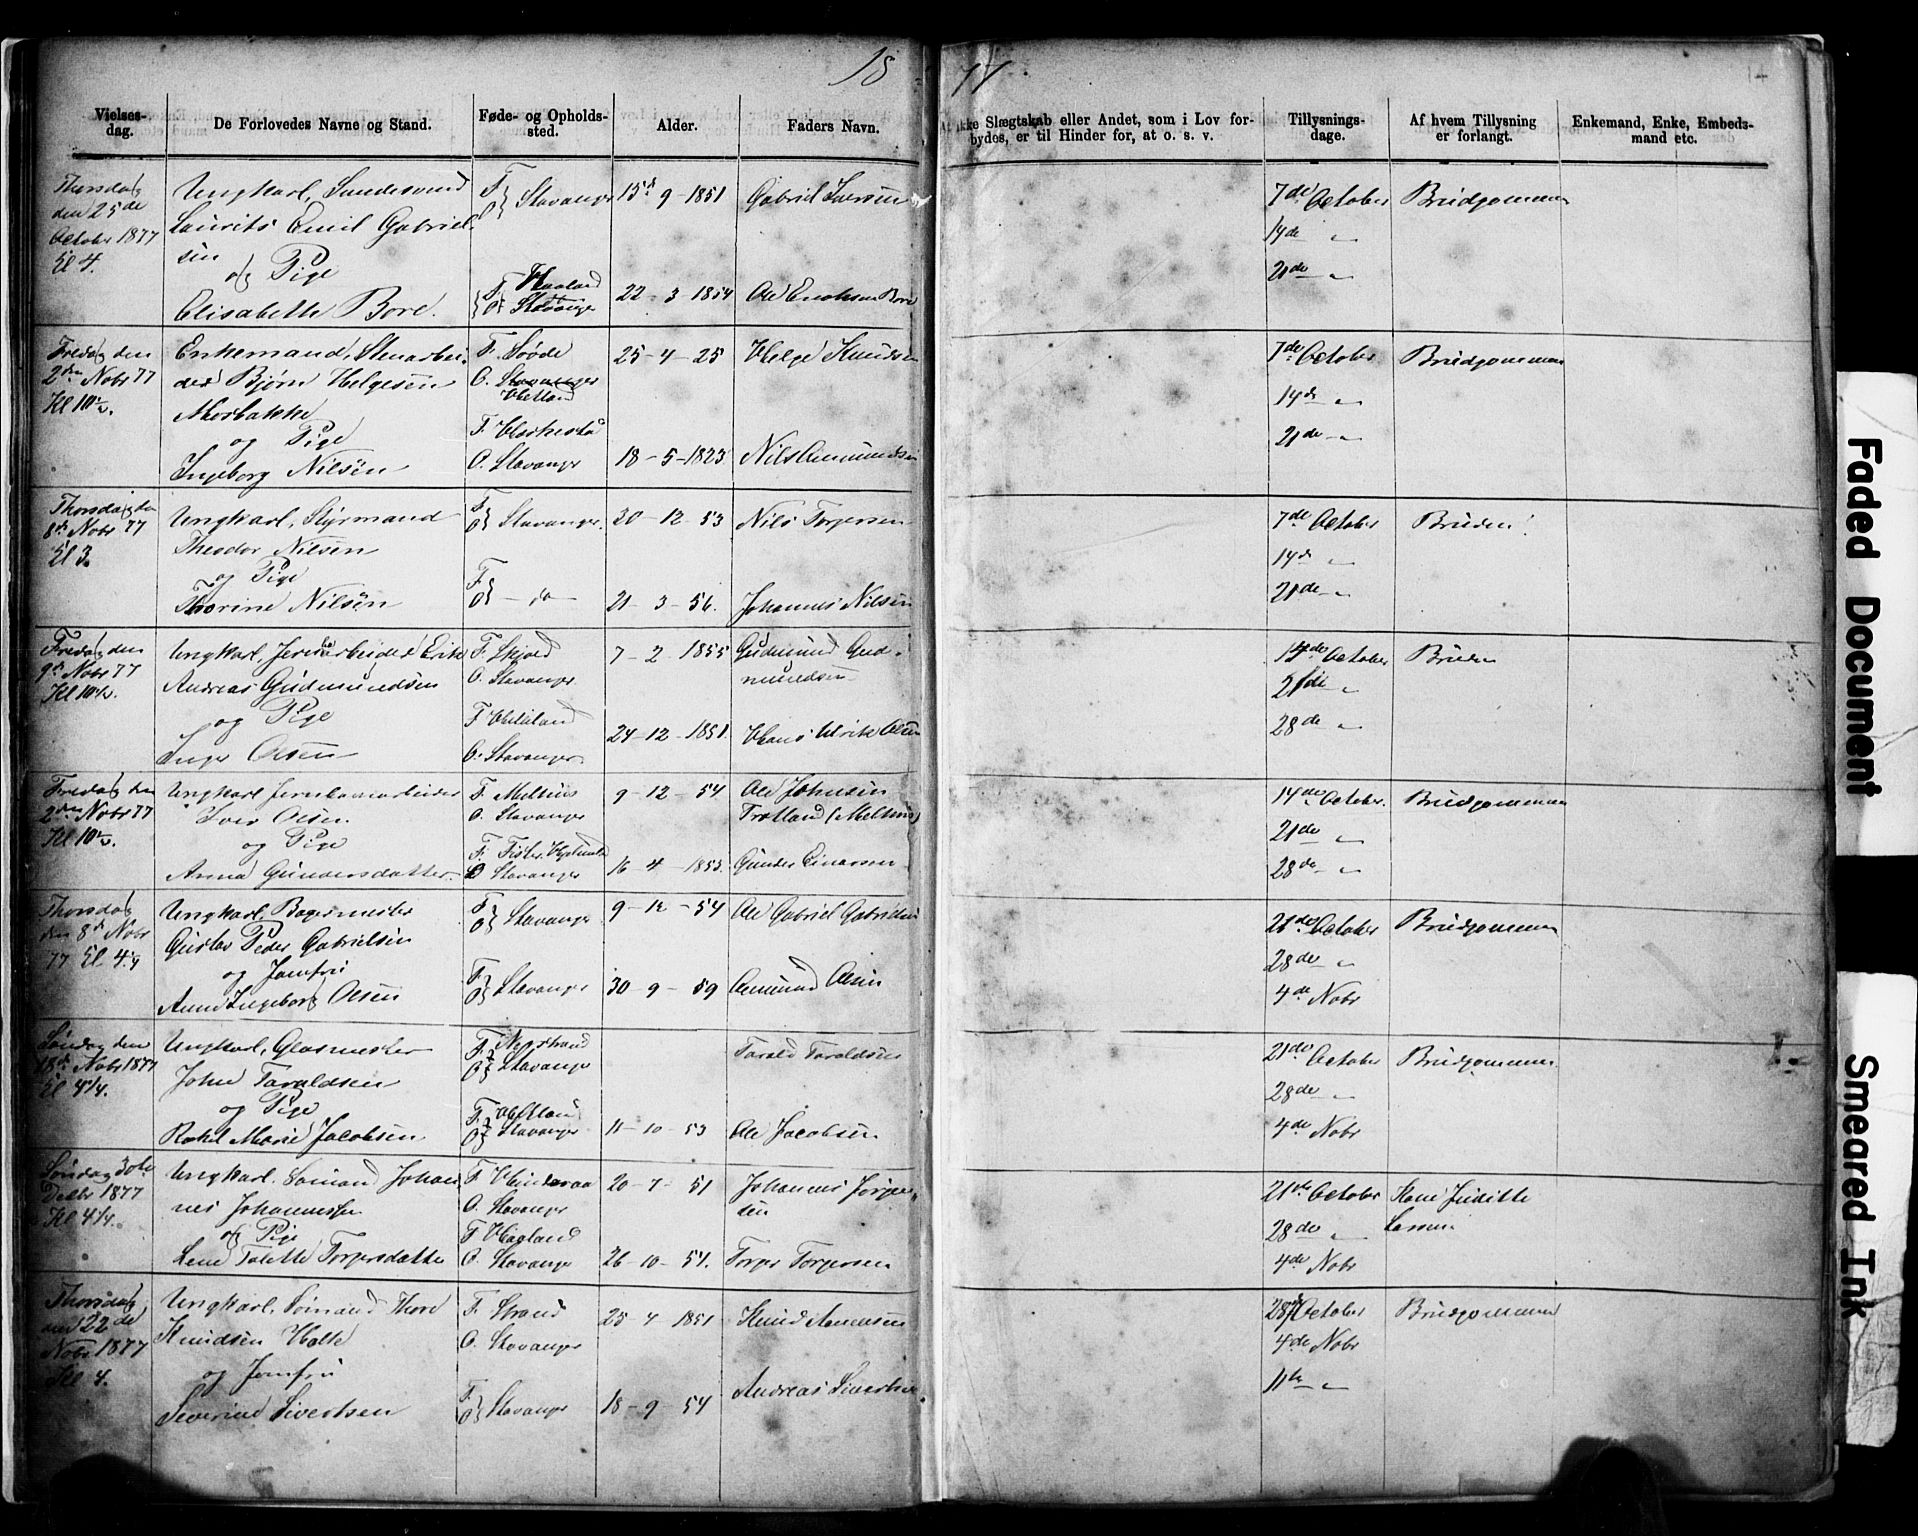 18 77
Vielses-dag. De Forlovedes Navne og Stand. Føde- og Opholds-sted. Alder. Faders Navn. ikke Slægtskab eller Andet, som i Lov for-bydes, er til Hinder for, at o. s. v. Tillysnings-dage. Af hvem Tillysning er forlangt. Enkemand, Enke, Embeds-mand etc.
Thorsdag Ungkarl, F Stavanger 15 9 - 1851 Gabriel 7de October Brudgommen
den 25de Laurits Emil Gabriel- O
October 1877 sen 14de "
Kl 4. og Pige F. Haaland 21de "
Elisabethe Bore. O. Stavanger 22 - 3 1854 Ole Bore
Fredag den Enkemand, Stenarbei- F. 25 - 4 - 25 Helge Knudsen 7de October Brudgommen
2den Nobr 77 der Bjørn Helgesen O. Stavanger 14de "
Kl 10½. Hetland
og Pige F. 21de "
Ingeborg Nilsen O. Stavanger 18 - 5 - 1823 Nils Amundsen
Thorsdag den Ungkarl, Styrmand F Stavanger. 30 - 12 - 53 Nils Torgersen 7de October Bruden
8de Nobr 77 Theodor Nilsen O 14de "
Kl 3. og Pige F 21de "
Thorine Nilsen O - do - 21 - 3 - 56. Johannes Nilsen
Fredag den Ungkarl, Erik F. 7 - 2 - 1855 Gudmund Gud- 14de October Bruden
9de Nobr 77 Andreas Gudmundsen O. Stavanger mundsen 21de "
Kl 10½. og Pige F Hetland 28de "
Inger Olsen O. Stavanger 24 - 12 - 1851. Hans Ulrik Olsen
Fredag den Ungkarl F. Melhus 9 - 12 - 54 Ole Johnsen 14de October. Brudgommen
2den Nobr 77 Iver Olsen O. Stavanger (Melhus) 21de "
Kl 10½. og Pige F. Fister 28de "
Anna Gundersdatter. O Stavanger 16 - 4 - 1853. Gunder Einarsen
Thorsdag Ungkarl, Bagermester F. Stavanger 9 - 12 - 54 Ole Gabriel Gabrielsen 21de October Brudgommen
den 8de Nobr Gustav Peder Gabrielsen O 28de "
77 Kl. 4¼ og Jomfru F. 4de Nobr
Anne Ingeborg Olsen O Stavanger 30 - 9 - 59 Amund Olsen
Søndag den Ungkarl, Glasmester F. Nerstrand Tarald Taraldsen 21de October Brudgommen
18de Nobr 1877 John Taraldsen O Stavanger 28de "
Kl 4¼. og Pige F. Hetland 4de Nobr
Rakel Marie Jacobsen O Stavanger 11 - 10 - 53 Ole Jacobsen
Søndag 30te Ungkarl. Sømand Johan- F 20 - 7 - 51 Johannes Jørgen- 21de October Judithe
Decbr 1877 nes Johannessen O. Stavanger sen 28de "
Kl 4¼. og Pige F Haaland 4de Nobr
Lene Talette Torgersdatter O. Stavanger 26 - 10 - 54. Torger Torgersen
Thorsdag Ungkarl, Sømand Thore F. Strand 25 - 4 - 1851 Knud Aanensen 28de October Brudgommen
den 22de Knudsen Holte O. Stavanger 4de Nobr
Nobr 1877 og Jomfru F 11te "
Kl 4. Severine Sivertsen O Stavanger 18 - 9 - 54 Andreas Sivertsen
Faded Document
Smeared Ink